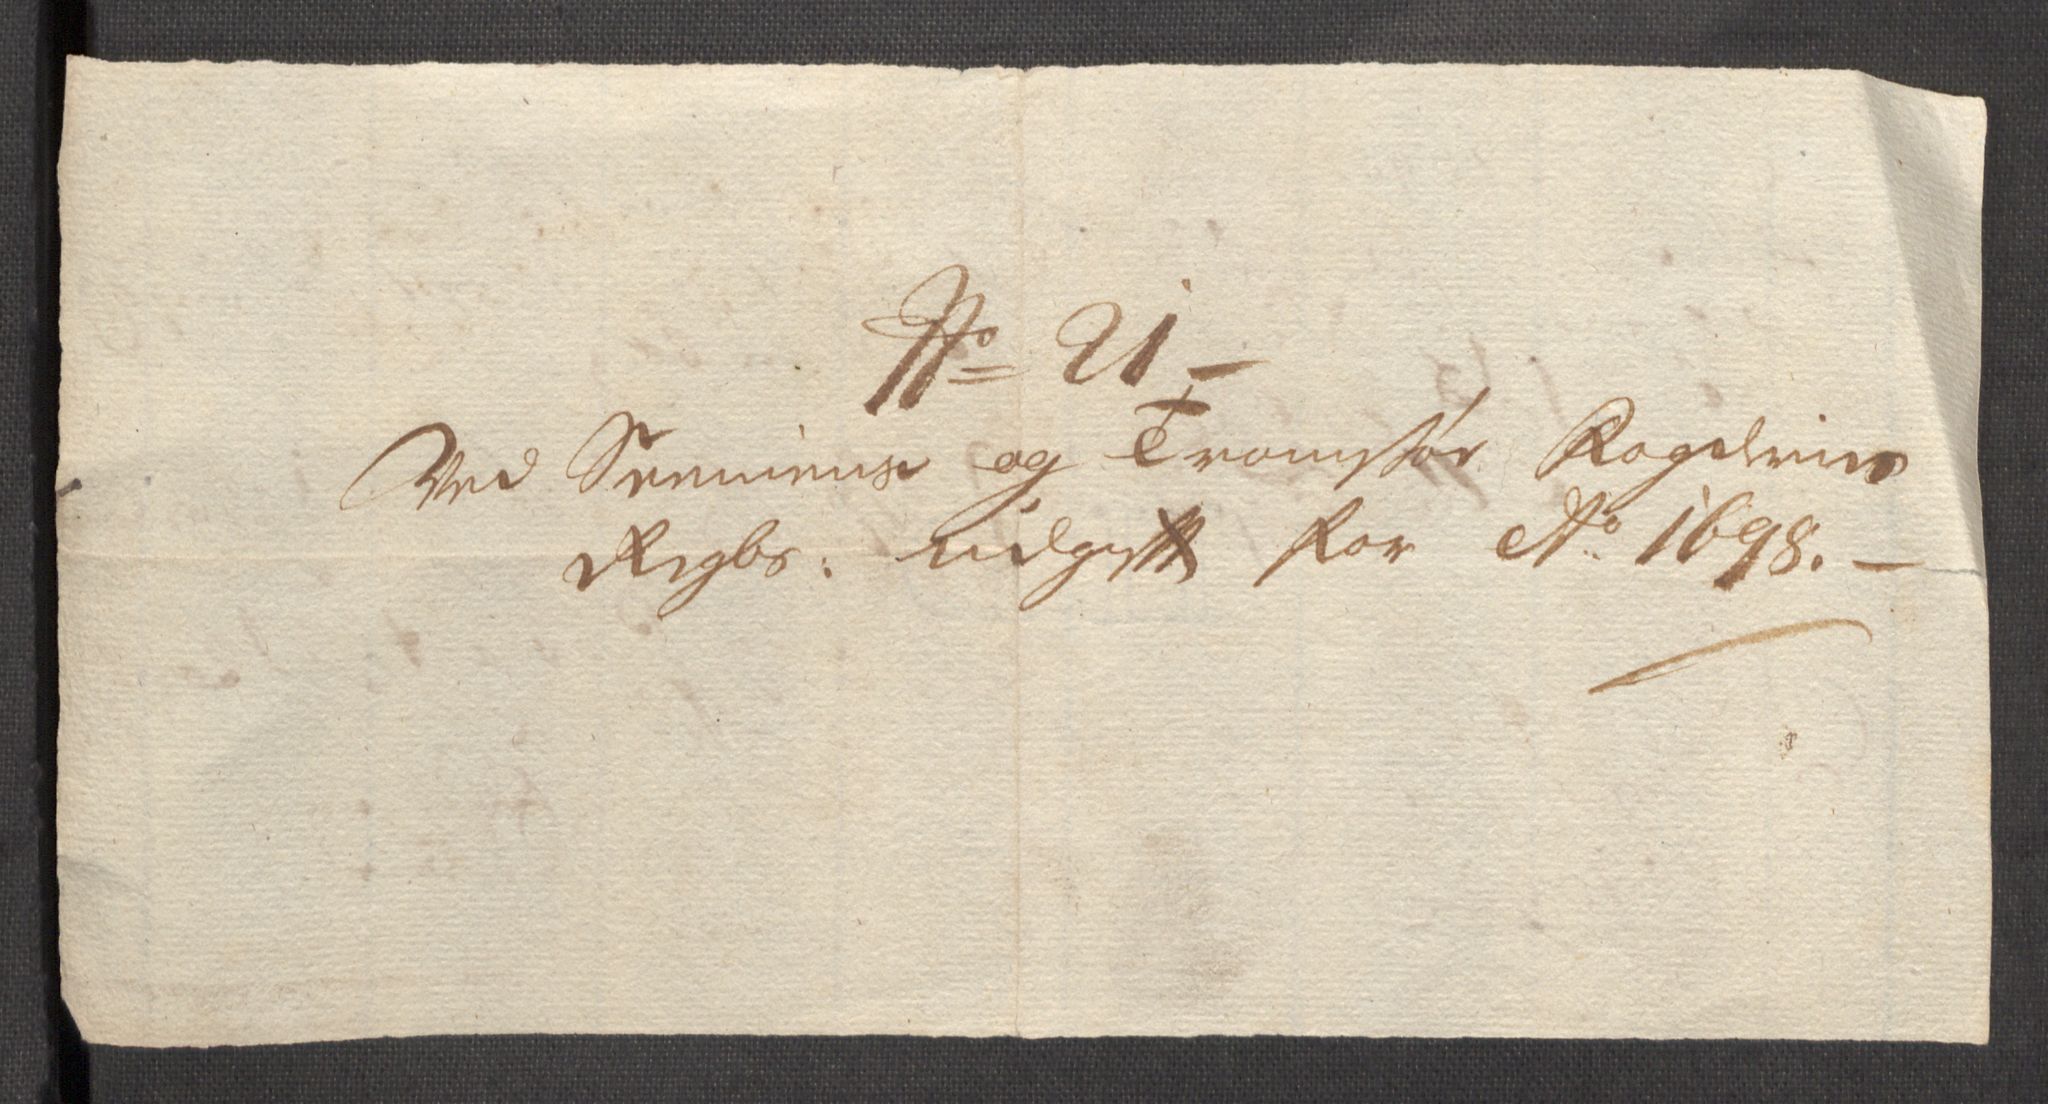 No 21 –
Ved Senniens og Tromsøes Fogderies
Regbs: udgifft for Ao 1698. –